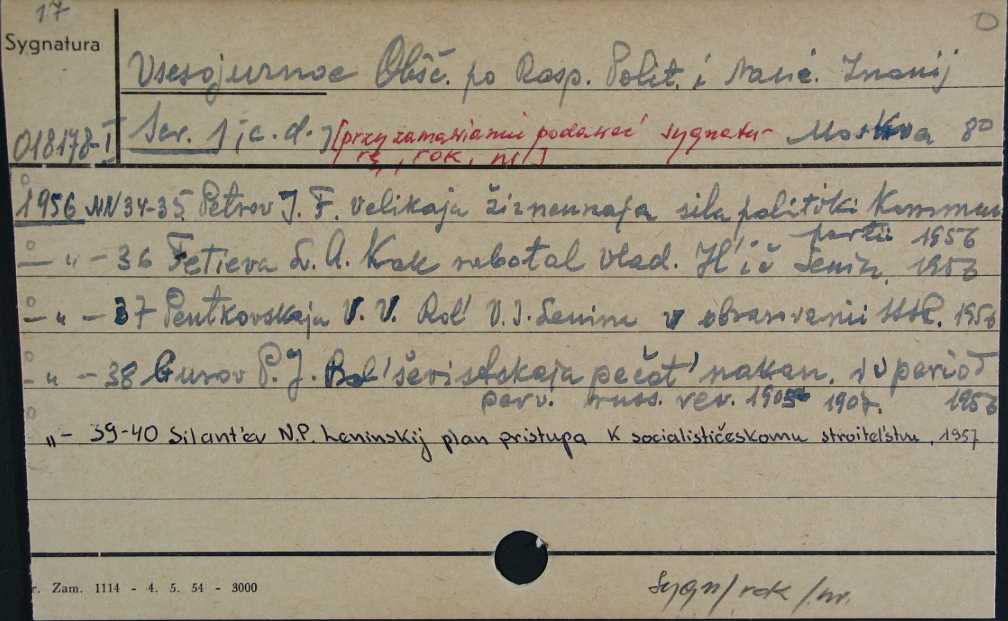 17
Sygnatura
Vsesojuznoe Obšč. po Rasp. Polit. i Nauč. Znanij
018178-I Ser. 1 (c.d.) [przy zamawianiu podawać sygnatu- Moskva 80
rę, rok, nr]
1956 NN 34-35 Petrov J. F. Velikaja žiznennaja sila politiki Kommun
partii 1956
— „ — 36 Fotieva L. A. Kak rabotal Vlad. Il'ič Lenin, 1956
— „ — 37 Pentkovskaja V. V. Rol' V. I. Lenina v obrazovanii SSSR. 1956
— „ — 38 Gurov P. J. Bol'ševistskaja pečat' nakan. i v period
perv. russ. rev. 1905 1907. 1956
„ — 39-40 Silant'ev N.P. Leninskij plan pristupa k socialističeskomu stroitel'stvu, 1957
r. Zam. 1114 - 4. 5. 54 - 3000
Sygn/rok/nr.